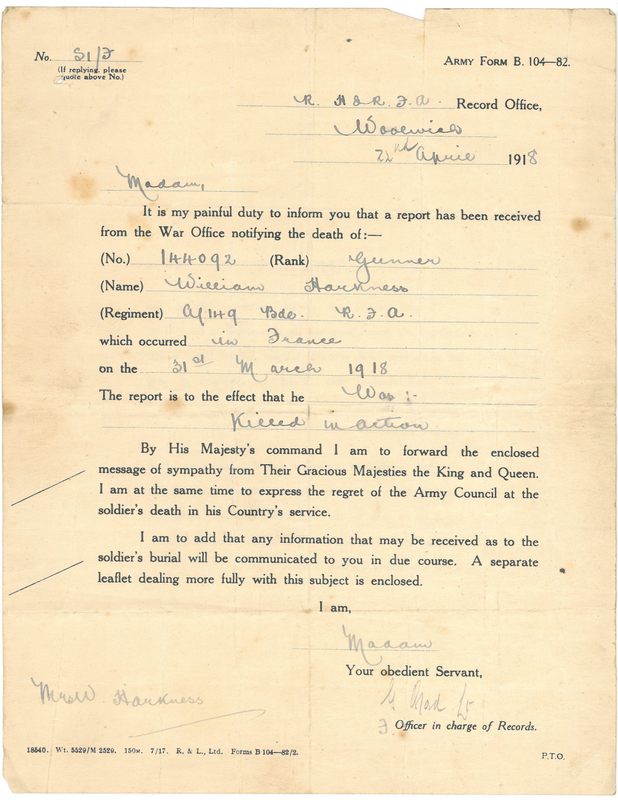 No. 51/F
ARMY FORM B. 104—82.
(If replying, please
quote above No.)
R. H & R. F. A. Record Office,
Woolwich
22nd April 1918
Madam,
It is my painful duty to inform you that a report has been received
from the War Office notifying the death of:—
(No.) 144092 (Rank) Gunner
(Name) William Harkness
(Regiment) A/149 Bde. R. F. A.
which occurred in France
on the 31st March 1918
The report is to the effect that he Was :-
Killed in action
By His Majesty's command I am to forward the enclosed
message of sympathy from Their Gracious Majesties the King and Queen.
I am at the same time to express the regret of the Army Council at the
soldier's death in his Country's service.
I am to add that any information that may be received as to the
soldier's burial will be communicated to you in due course. A separate
leaflet dealing more fully with this subject is enclosed.
I am,
Madam
Your obedient Servant,
Mrs W. Harkness
Officer in charge of Records.
18540. Wt. 5529/M 2529. 150M. 7/17. R. & L., Ltd. Forms B 104—82/2.
P.T.O.